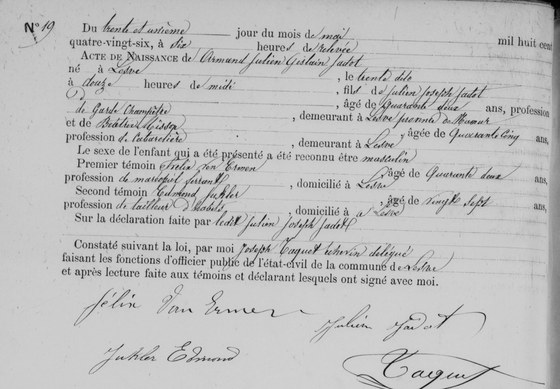 N° 19
Du trente et unième jour du mois de mai mil huit cent
quatre-vingt-six, à six heures de relevée
ACTE DE NAISSANCE de Armand Julien Gislain Jadot
né à Lesve, le trente dito
à douze heures de midi, fils de Julien Joseph Jadot
âgé de Quarante deux ans, profession
de Garde Champêtre, demeurant à Lesve province de Namur
et de Béatrice, âgée de Quarante cinq ans,
profession de Cabaretière, demeurant à Lesve
Le sexe de l'enfant qui a été présenté a été reconnu être masculin
Premier témoin Félix Van Ermen, âgé de Quarante deux ans
profession de maréchal ferrant, domicilié à Lesve
Second témoin Edmond, âgé de vingt sept ans,
profession de tailleur d'habits, domicilié à Lesve
Sur la déclaration faite par ledit Julien Joseph Jadot
Constaté suivant la loi, par moi Joseph Taquet échevin délégué
faisant les fonctions d'officier public de l'état-civil de la commune de Lesve
et après lecture faite aux témoins et déclarant lesquels ont signé avec moi.
Félix Van Ermen
Julien Jadot
Edmond
Taquet